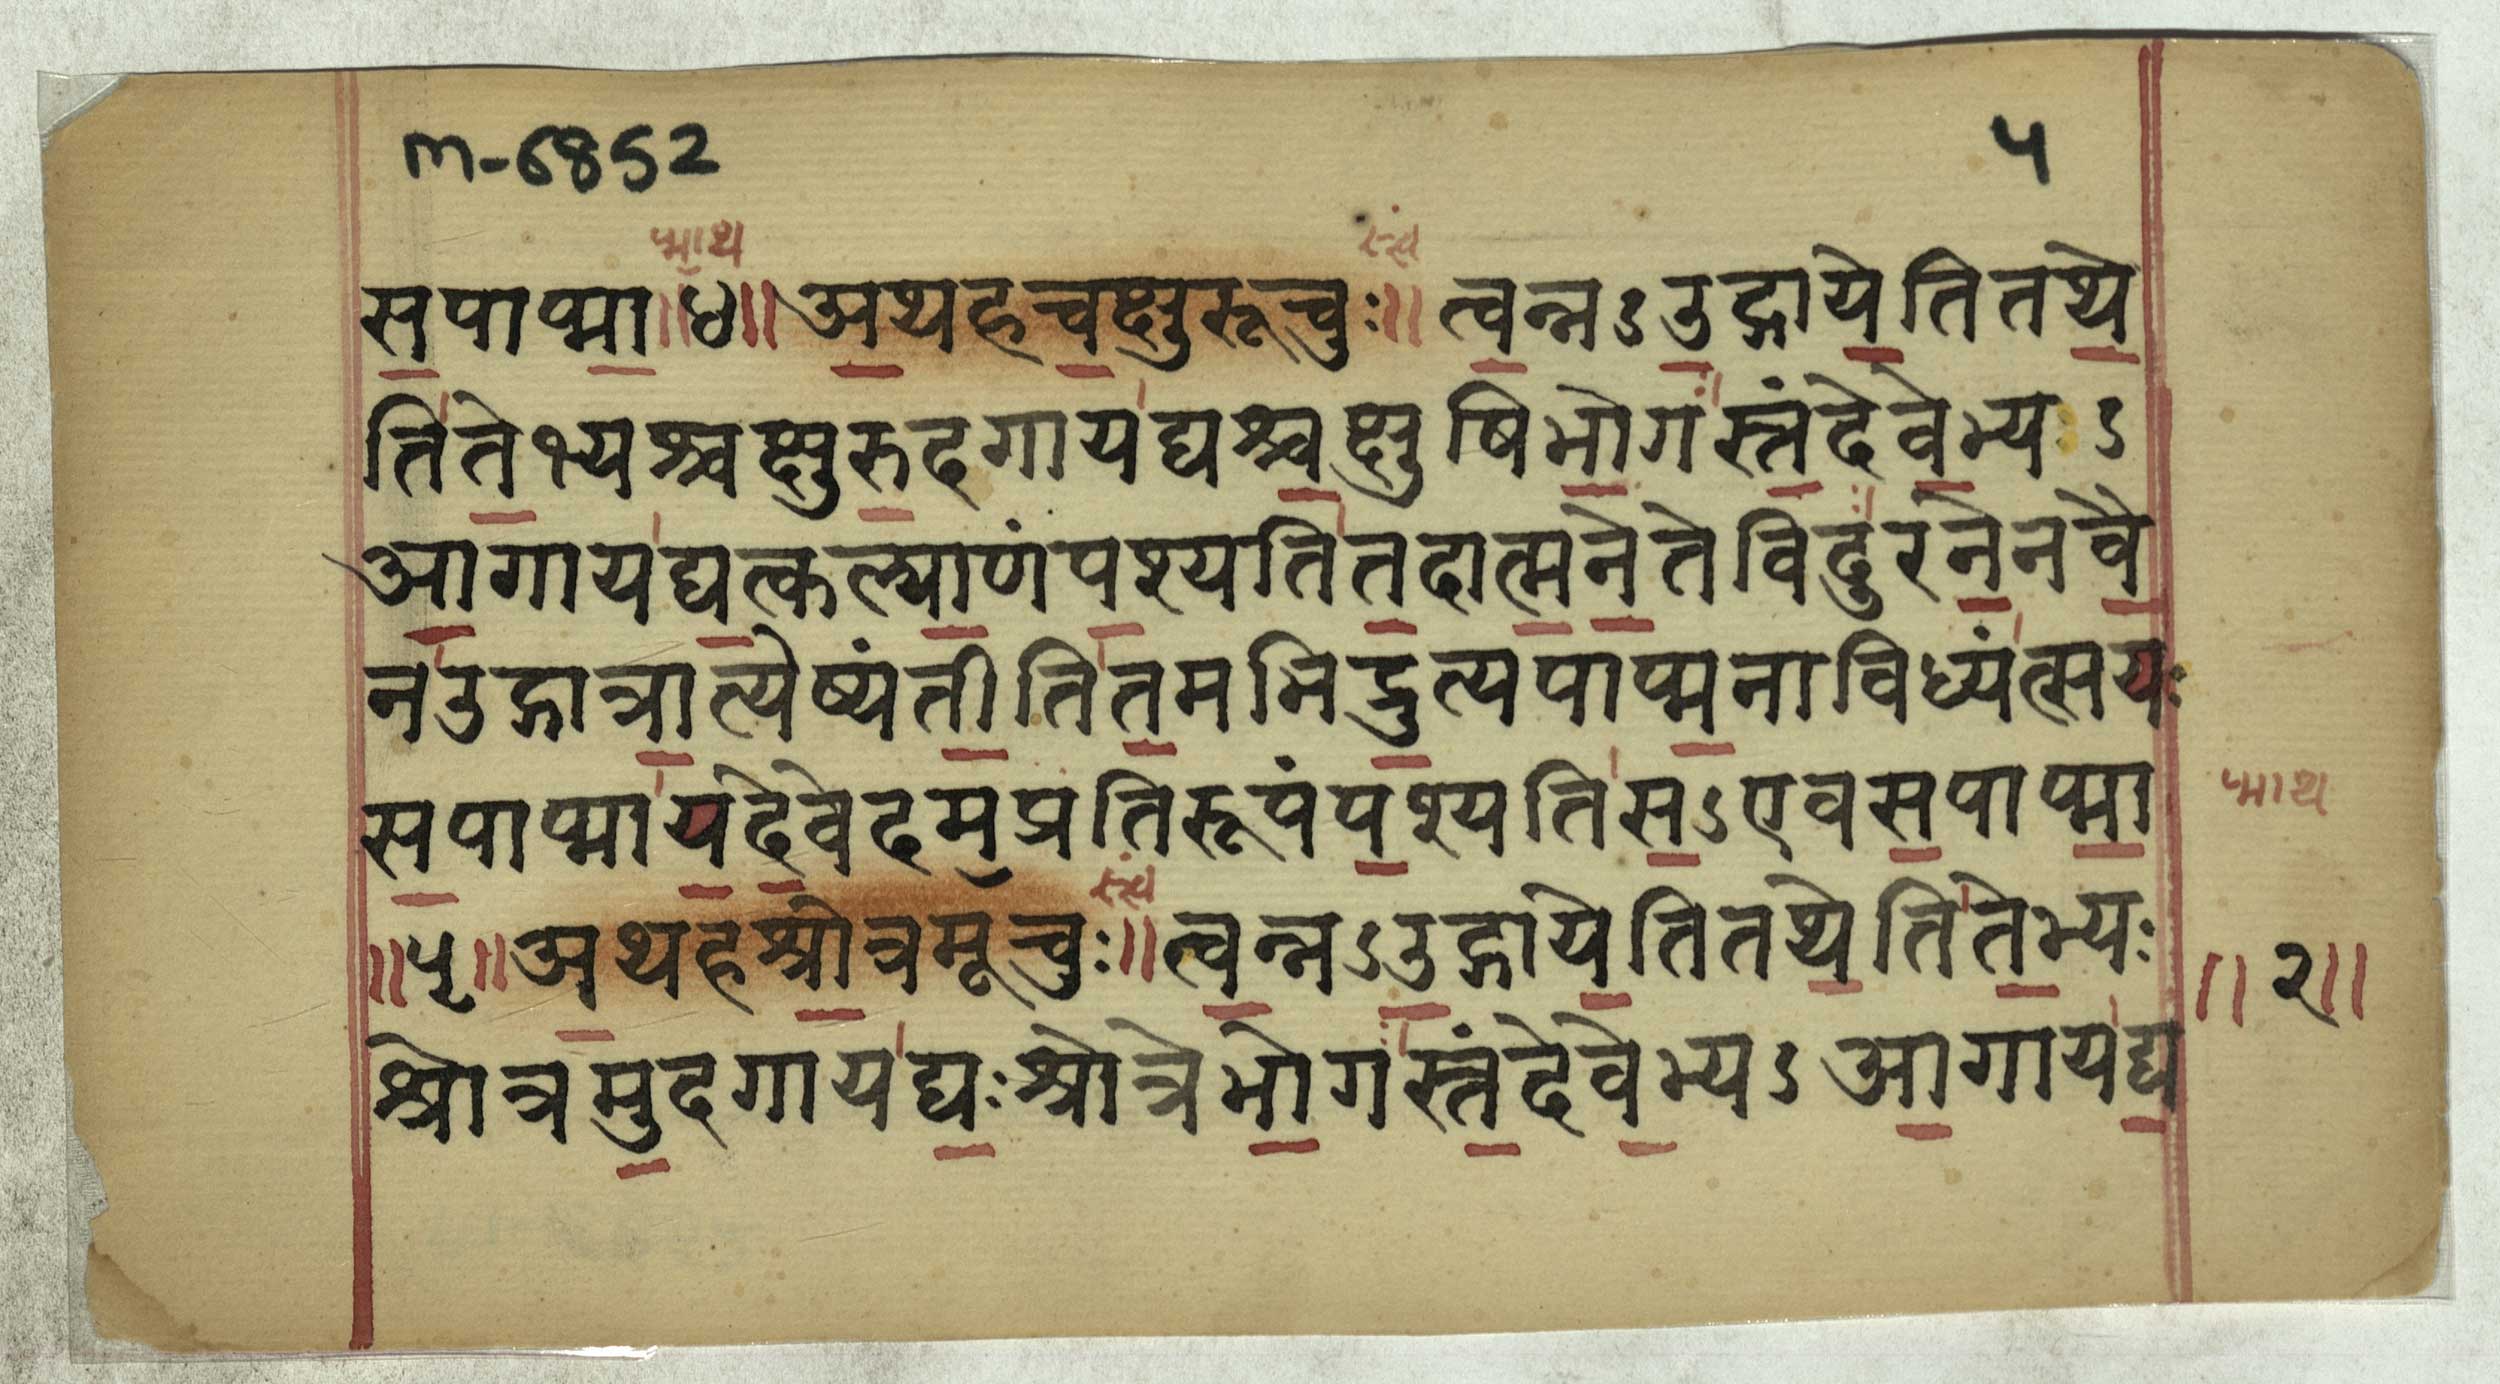 m-6852
५
प्माथ
स्त्वं
सपाप्मा॥४॥अथहचक्षुरूचुः॥त्वन्नऽउद्गायेतितथे
तितेभ्यश्चक्षुरुदगायद्यश्चक्षुषिभोगस्तंदेवेभ्यऽ
आगायद्यत्कल्याणंपश्यतितदात्मनेतेविदुरनेनवै
नउद्गात्रात्येष्यंतीतितमभिद्रुत्यपाप्मनाविध्यंत्सयः
सपाप्मायदेवेदमप्रतिरूपंपश्यतिसऽएवसपाप्मा
प्माथ
स्त्वं
॥५॥अथहश्रोत्रमूचुः॥त्वन्नऽउद्गायेतितथेतितेभ्यः
॥२॥
श्रोत्रमुदगायद्यःश्रोत्रेभोगस्तंदेवेभ्यऽआगायद्य